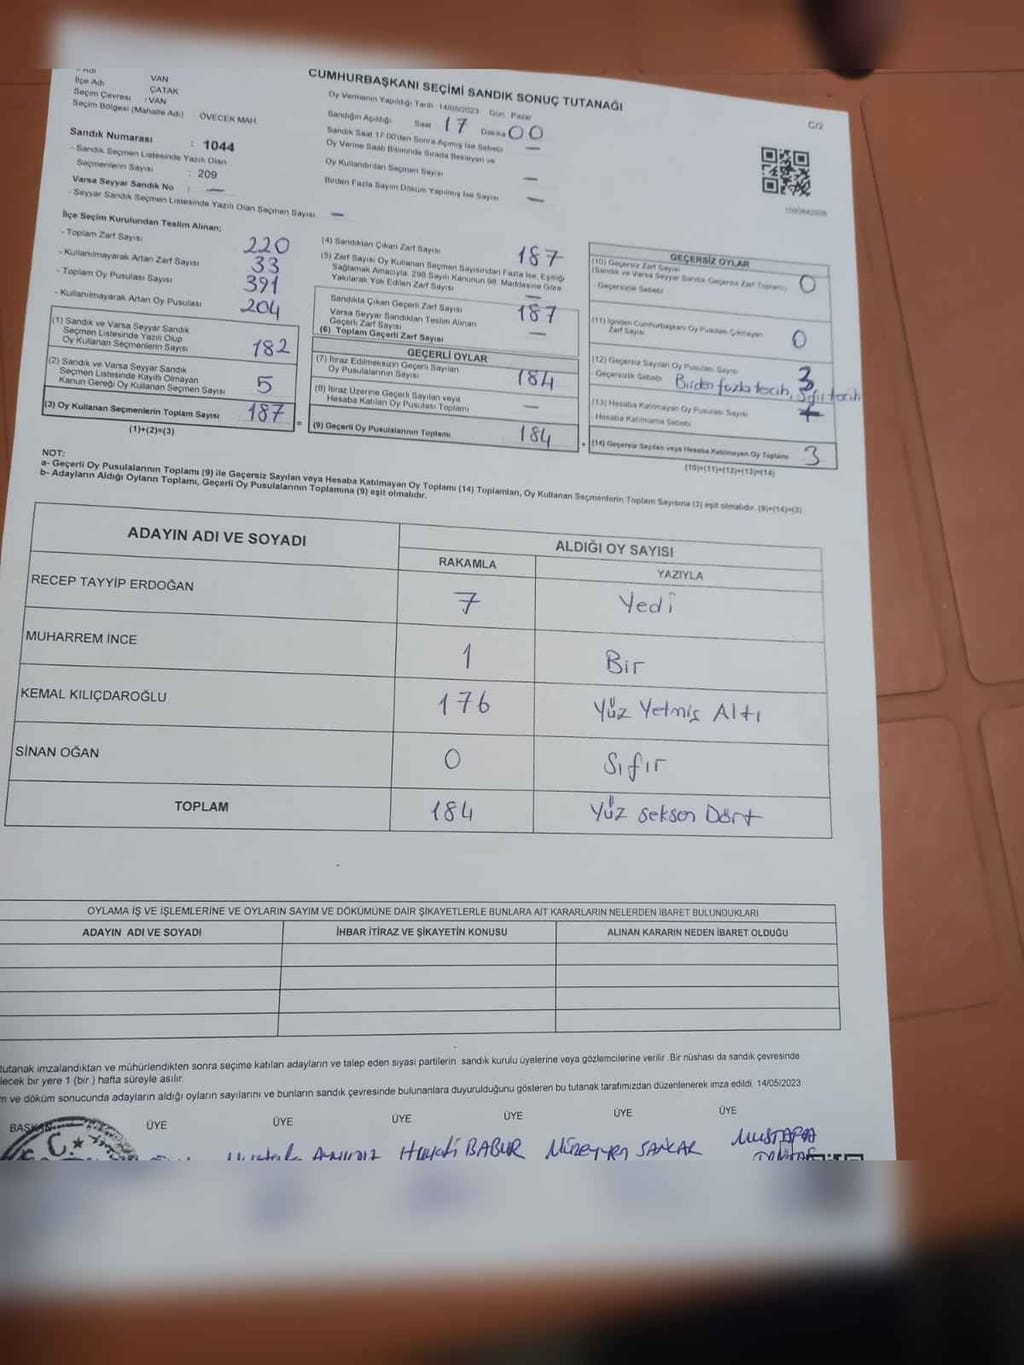 CUMHURBAŞKANI SEÇİMİ SANDIK SONUÇ TUTANAĞI
C/2
İlçe Adı
VAN
ÇATAK
Seçim Çevresi : VAN
Seçim Bölgesi (Mahalle Adı) ÖVECEK MAH.
Sandık Numarası : 1044
- Sandık Seçmen Listesinde Yazılı Olan
Seçmenlerin Sayısı : 209
Varsa Seyyar Sandık No : —
- Seyyar Sandık Seçmen Listesinde Yazılı Olan Seçmen Sayısı —
Oy Vermenin Yapıldığı Tarih 14/05/2023 Gün Pazar
Sandığın Açıldığı Saat 17 Dakika 00
Sandık Saat 17.00'den Sonra Açılmış İse Sebebi —
Oy Verme Saati Bitiminde Sırada Bekleyen ve
Oy Kullandırılan Seçmen Sayısı —
Birden Fazla Sayım Döküm Yapılmış İse Sayısı —
İlçe Seçim Kurulundan Teslim Alınan;
- Toplam Zarf Sayısı 220
- Kullanılmayarak Artan Zarf Sayısı 33
- Toplam Oy Pusulası Sayısı 391
- Kullanılmayarak Artan Oy Pusulası 204
(1) Sandık ve Varsa Seyyar Sandık
Seçmen Listesinde Yazılı Olup
Oy Kullanan Seçmenlerin Sayısı 182
(2) Sandık ve Varsa Seyyar Sandık
Seçmen Listesinde Kayıtlı Olmayan
Kanun Gereği Oy Kullanan Seçmen Sayısı 5
(3) Oy Kullanan Seçmenlerin Toplam Sayısı 187
(1)+(2)=(3)
(4) Sandıktan Çıkan Zarf Sayısı 187
(5) Zarf Sayısı Oy Kullanan Seçmen Sayısından Fazla İse, Eşitliği
Sağlamak Amacıyla, 298 Sayılı Kanunun 98. Maddesine Göre
Yakılarak Yok Edilen Zarf Sayısı —
Sandıkta Çıkan Geçerli Zarf Sayısı 187
Varsa Seyyar Sandıktan Teslim Alınan
Geçerli Zarf Sayısı —
(6) Toplam Geçerli Zarf Sayısı
GEÇERLİ OYLAR
(7) İtiraz Edilmeksizin Geçerli Sayılan
Oy Pusulalarının Sayısı 184
(8) İtiraz Üzerine Geçerli Sayılan veya
Hesaba Katılan Oy Pusulası Toplamı —
(9) Geçerli Oy Pusulalarının Toplamı 184
GEÇERSİZ OYLAR
(10) Geçersiz Zarf Sayısı
(Sandık ve Varsa Seyyar Sandık Geçersiz Zarf Toplamı) 0
- Geçersizlik Sebebi
(11) İçinden Cumhurbaşkanı Oy Pusulası Çıkmayan
Zarf Sayısı 0
(12) Geçersiz Sayılan Oy Pusulası Sayısı 3
Geçersizlik Sebebi Birden fazla tercih, Sıfır tercih
(13) Hesaba Katılmayan Oy Pusulası Sayısı
Hesaba Katılmama Sebebi
(14) Geçersiz Sayılan veya Hesaba Katılmayan Oy Toplamı 3
(10)+(11)+(12)+(13)=(14)
NOT:
a- Geçerli Oy Pusulalarının Toplamı (9) ile Geçersiz Sayılan veya Hesaba Katılmayan Oy Toplamı (14) Toplamları, Oy Kullanan Seçmenlerin Toplam Sayısına (3) eşit olmalıdır. (9)+(14)=(3)
b- Adayların Aldığı Oyların Toplamı, Geçerli Oy Pusulalarının Toplamına (9) eşit olmalıdır.
ADAYIN ADI VE SOYADI ALDIĞI OY SAYISI
RAKAMLA YAZIYLA
RECEP TAYYİP ERDOĞAN 7 Yedi
MUHARREM İNCE 1 Bir
KEMAL KILIÇDAROĞLU 176 Yüz Yetmiş Altı
SİNAN OĞAN 0 Sıfır
TOPLAM 184 Yüz seksen Dört
OYLAMA İŞ VE İŞLEMLERİNE VE OYLARIN SAYIM VE DÖKÜMÜNE DAİR ŞİKAYETLERLE BUNLARA AİT KARARLARIN NELERDEN İBARET BULUNDUKLARI
ADAYIN ADI VE SOYADI İHBAR İTİRAZ VE ŞİKAYETİN KONUSU ALINAN KARARIN NEDEN İBARET OLDUĞU
tutanak imzalandıktan ve mühürlendikten sonra seçime katılan adayların ve talep eden siyasi partilerin sandık kurulu üyelerine veya gözlemcilerine verilir. Bir nüshası da sandık çevresinde
lecek bir yere 1 (bir) hafta süreyle asılır.
m ve döküm sonucunda adayların aldığı oyların sayılarını ve bunların sandık çevresinde bulunanlara duyurulduğunu gösteren bu tutanak tarafımızdan düzenlenerek imza edildi. 14/05/2023
BAŞKAN ÜYE ÜYE ÜYE ÜYE ÜYE ÜYE
Hayati BABUR
SANCAR
MUSTAFA